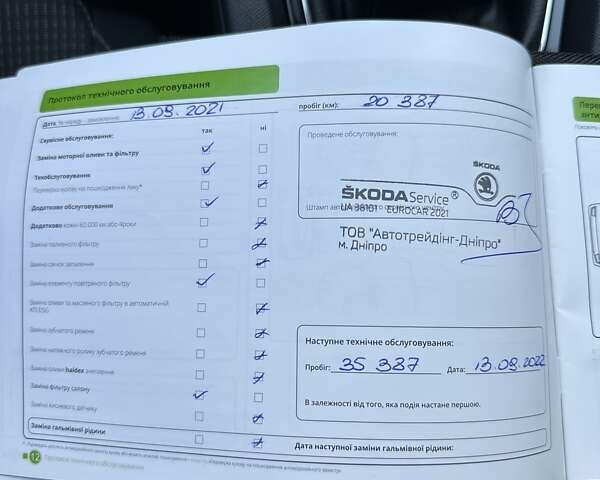 Протокол технічного обслуговування
Дата 13.09.2021
пробіг (км): 20 387
так ні
Сервісне обслуговування:
Заміна моторної оливи та фільтру
Техобслуговування
Перевірка колес на пошкодження лаку*
Додаткове обслуговування
Додаткове кожні 60.000 км або 4роки
Заміна паливного фільтру
Заміна свічок запалення
Заміна елементу повітряного фільтру
Заміна оливи та масляного фільтру в автоматичній
КП,DSG
Заміна зубчатого ременя
Заміна натяжного ролику зубчатого ременя
Заміна оливи haldex зчеплення
Заміна фільтру салону
Заміна кисневого датчику
Заміна гальмівної рідини
Проведене обслуговування:
ŠKODA
ŠKODA Service®
Штамп
UA 38101 EUROCAR 2021
ТОВ "Автотрейдінг-Дніпро"
м. Дніпро
Наступне технічне обслуговування:
Пробіг: 35 387 Дата: 13.09.2022
В залежності від того, яка подія настане першою.
Дата наступної заміни гальмівної рідини:
12 Протокол технічного обслуговування